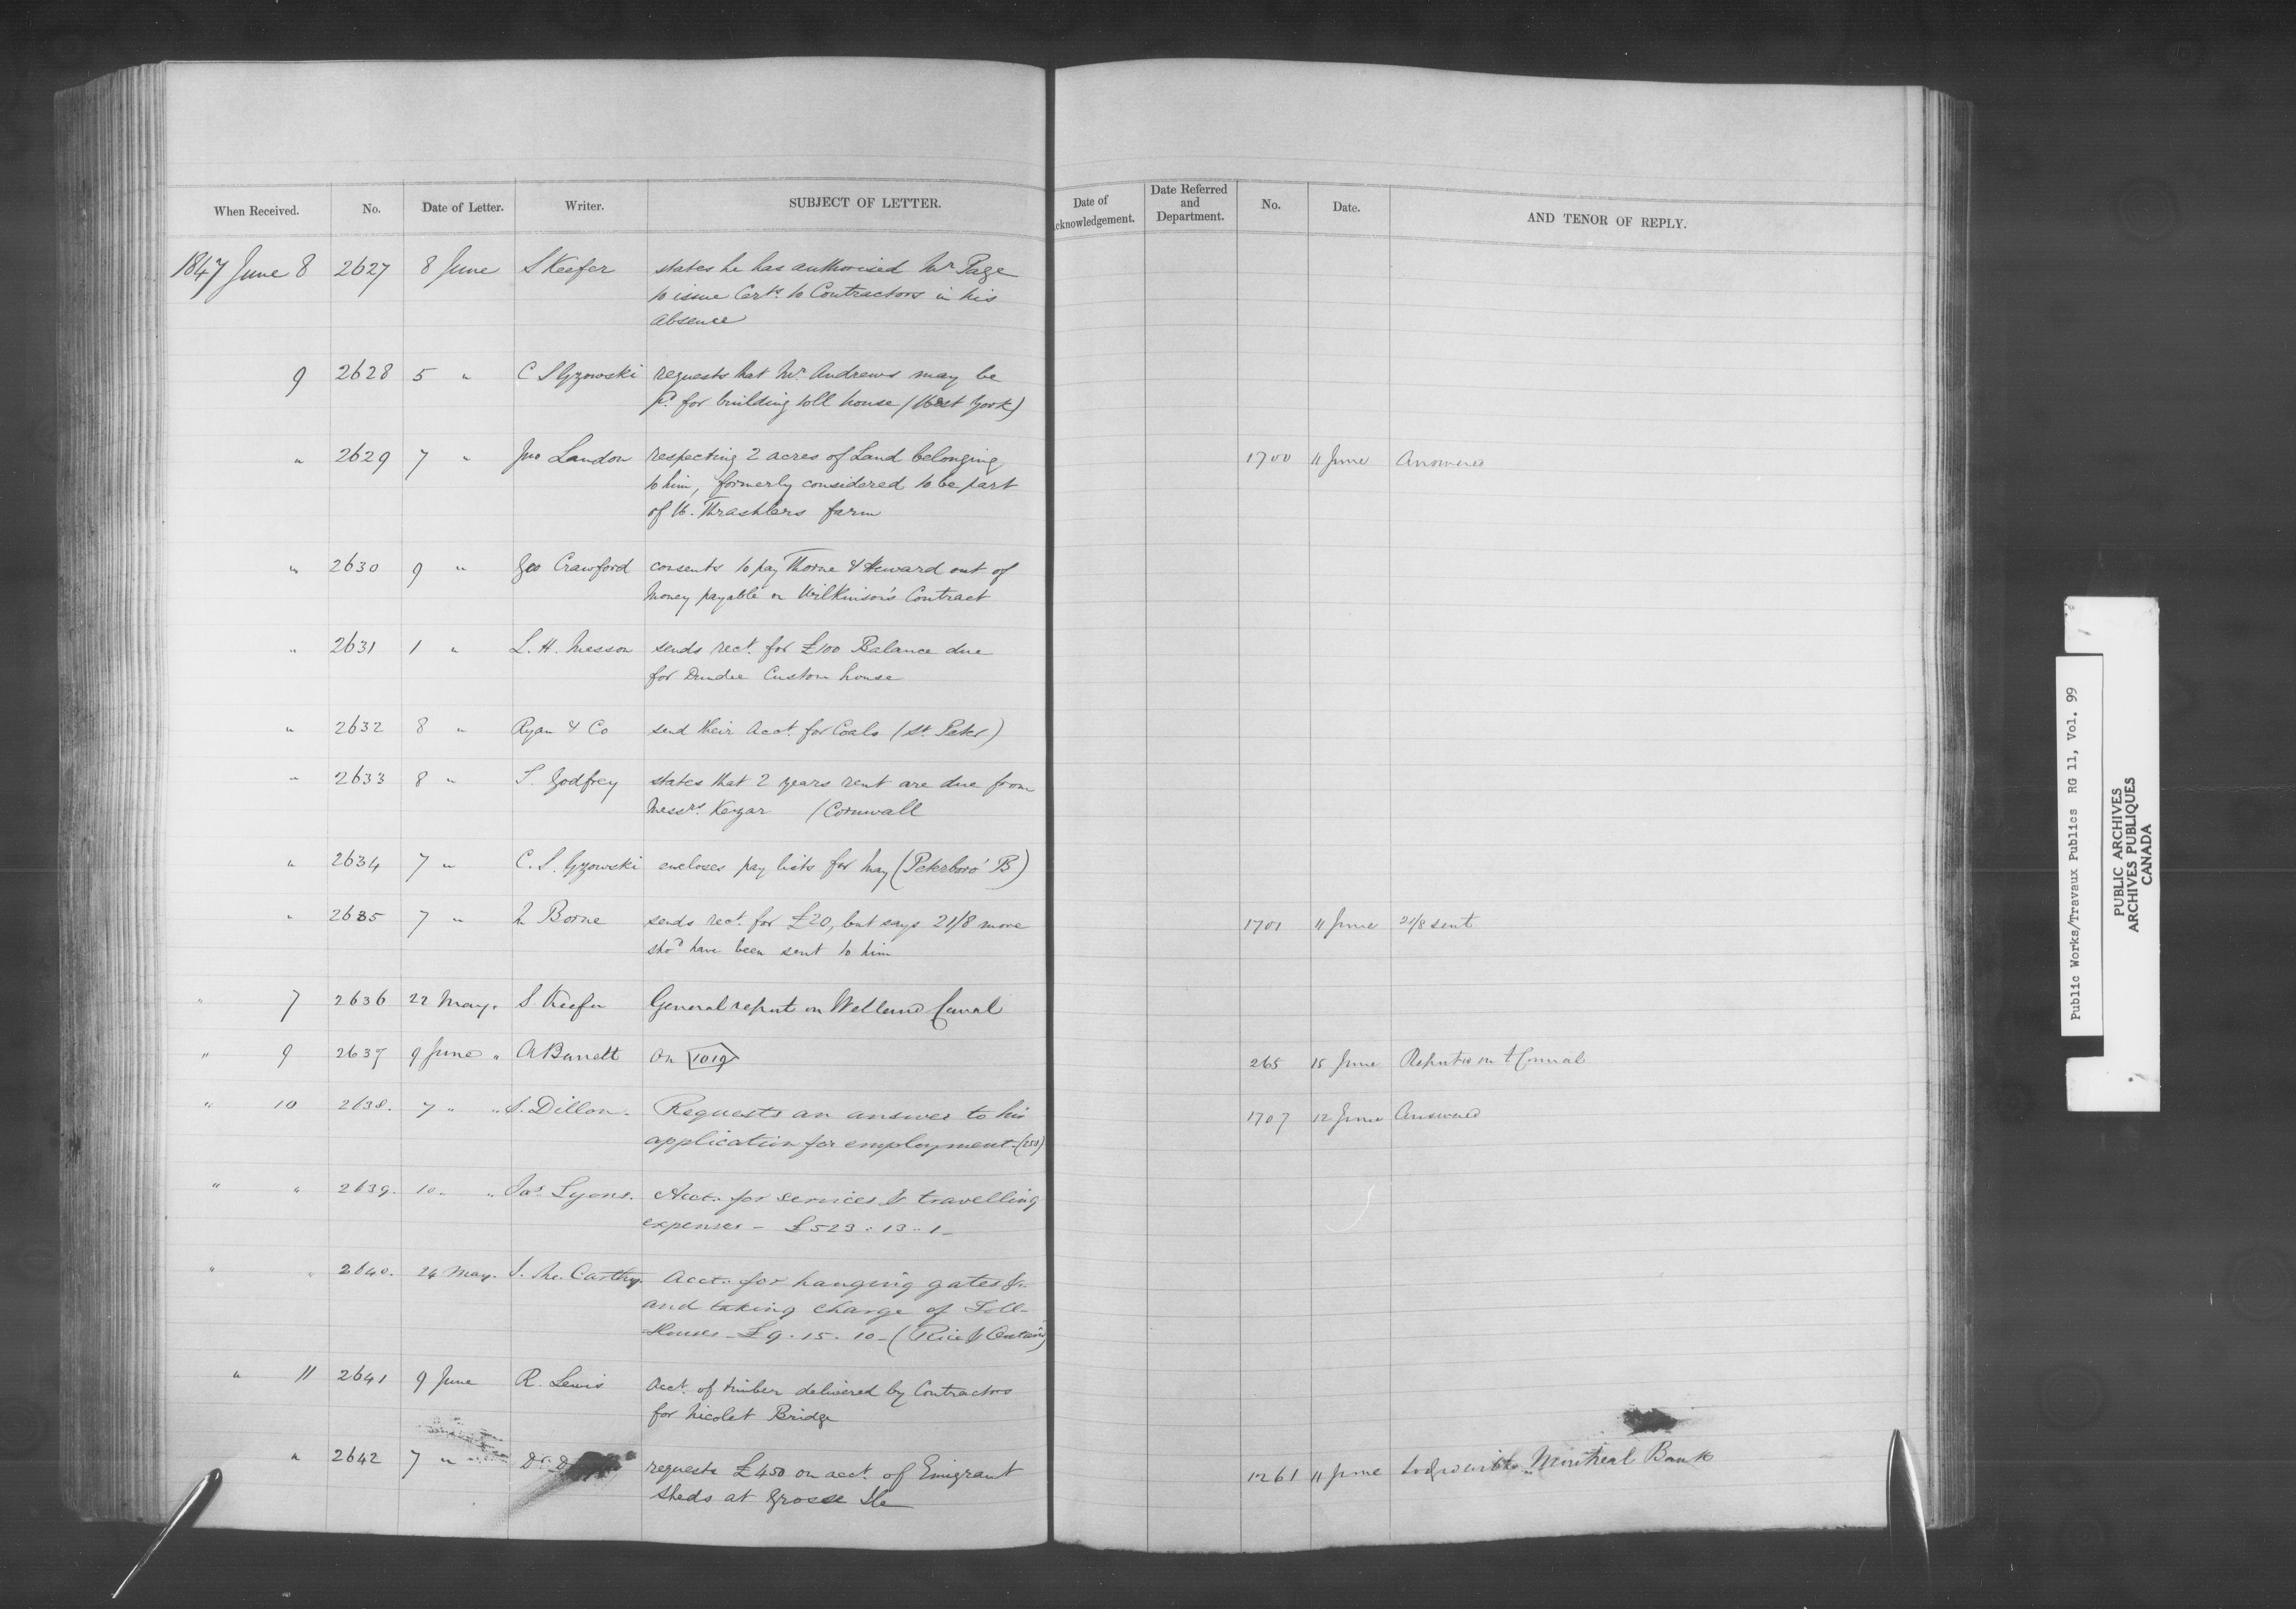 When Received. No. Date of Letter. Writer. SUBJECT OF LETTER. Date of Acknowledgement. Date Referred and Department. No. Date. AND TENOR OF REPLY.
1847 June 8 2627 8 June S Keefer states he has authorised Mr Page
to issue Certs. to Contractors in his
absence
9 2628 5 " C S Gzowski requests that Mr. Andrews may be
pd. for building toll house (West York)
" 2629 7 " Jno Landon respecting 2 acres of Land belonging 1700 11 June Answered
to him, formerly considered to be part
of W. Thrashlers farm
" 2630 9 " Geo Crawford consents to pay Thorne & Heward out of
money payable on Wilkinson's Contract
" 2631 1 " L. H. Masson sends rect. for £100 Balance due
for Dundee Custom house
" 2632 8 " Ryan & Co send their acct. for Coals (St. Peter)
" 2633 8 " S. Godfrey states that 2 years rent are due from
Messrs. Keyar (Cornwall
" 2634 7 " C. S. Gzowski encloses pay lists for May (Peterboro' B)
" 2635 7 " Borne sends rect. for £20, but says 21/8 more 1701 11 June 21/8 sent
shod have been sent to him
" 7 2636 22 May. S. Keefer General report on Welland Canal
" 9 2637 9 June " A Barrett On 1019 265 15 June Reported on to
" 10 2638. 7 " " S. Dillon. Requests an answer to his 1707 12 June Answered
application for employment.
" " 2639. 10 " " Jas. Lyons. Acct. for services & travelling
expenses - £523..13..1-
" " 2640. 24 May. J. Mc. Carthy. Acct. for hanging gates &c
and taking charge of Toll-
Houses - £9.15.10 - (Rice &
" 11 2641 9 June R. Lewis Acct. of timber delivered by Contractors
for Nicolet Bridge
" 2642 7 " Dr. D requests £450 on acct. of Emigrant 1261 11 June Montreal Bank
Sheds at Grosse Ile
Public Works/Travaux Publics RG 11, Vol. 99
PUBLIC ARCHIVES
ARCHIVES PUBLIQUES
CANADA